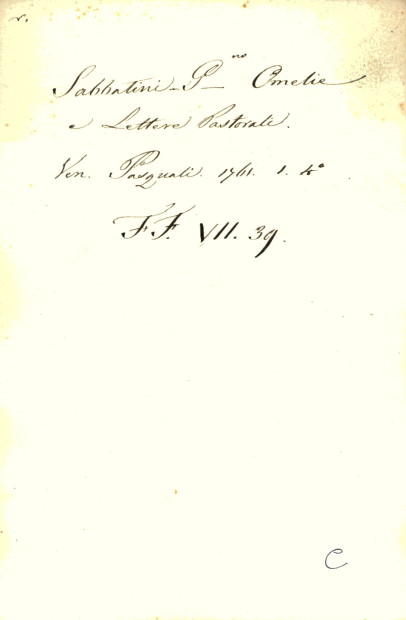 r.
Sabbatini - G-no Omelie
e Lettere Pastorali.
Ven. Pasquali. 1761. 1. 4°
F.F. VII. 39.
C